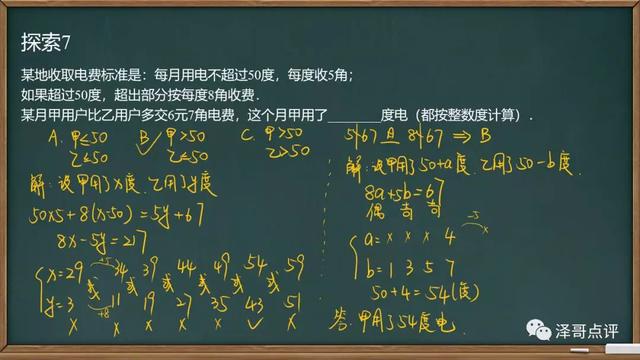 探索7
某地收取电费标准是：每月用电不超过50度，每度收5角；
如果超过50度，超出部分按每度8角收费．
某月甲用户比乙用户多交6元7角电费，这个月甲用了________度电（都按整数度计算）．
A. 甲≤50 B. 甲>50 C. 甲>50
乙≤50 乙≤50 乙>50
解:设甲用了x度,乙用了y度
50×5+8(x-50)=5y+67
8x-5y=217
x=29 或 34 或 39 或 44 或 49 或 54 或 59
+5
y=3 11 19 27 35 43 51
+8
× × × × × ✓ ×
5∤67 且 8∤67 ⇒ B
解:设甲用了50+a度,乙用了50-b度.
8a+5b=67
偶 奇 奇
a= × × × 4 ×
-5
b= 1 3 5 7
50+4=54(度)
答:甲用了54度电
泽哥点评